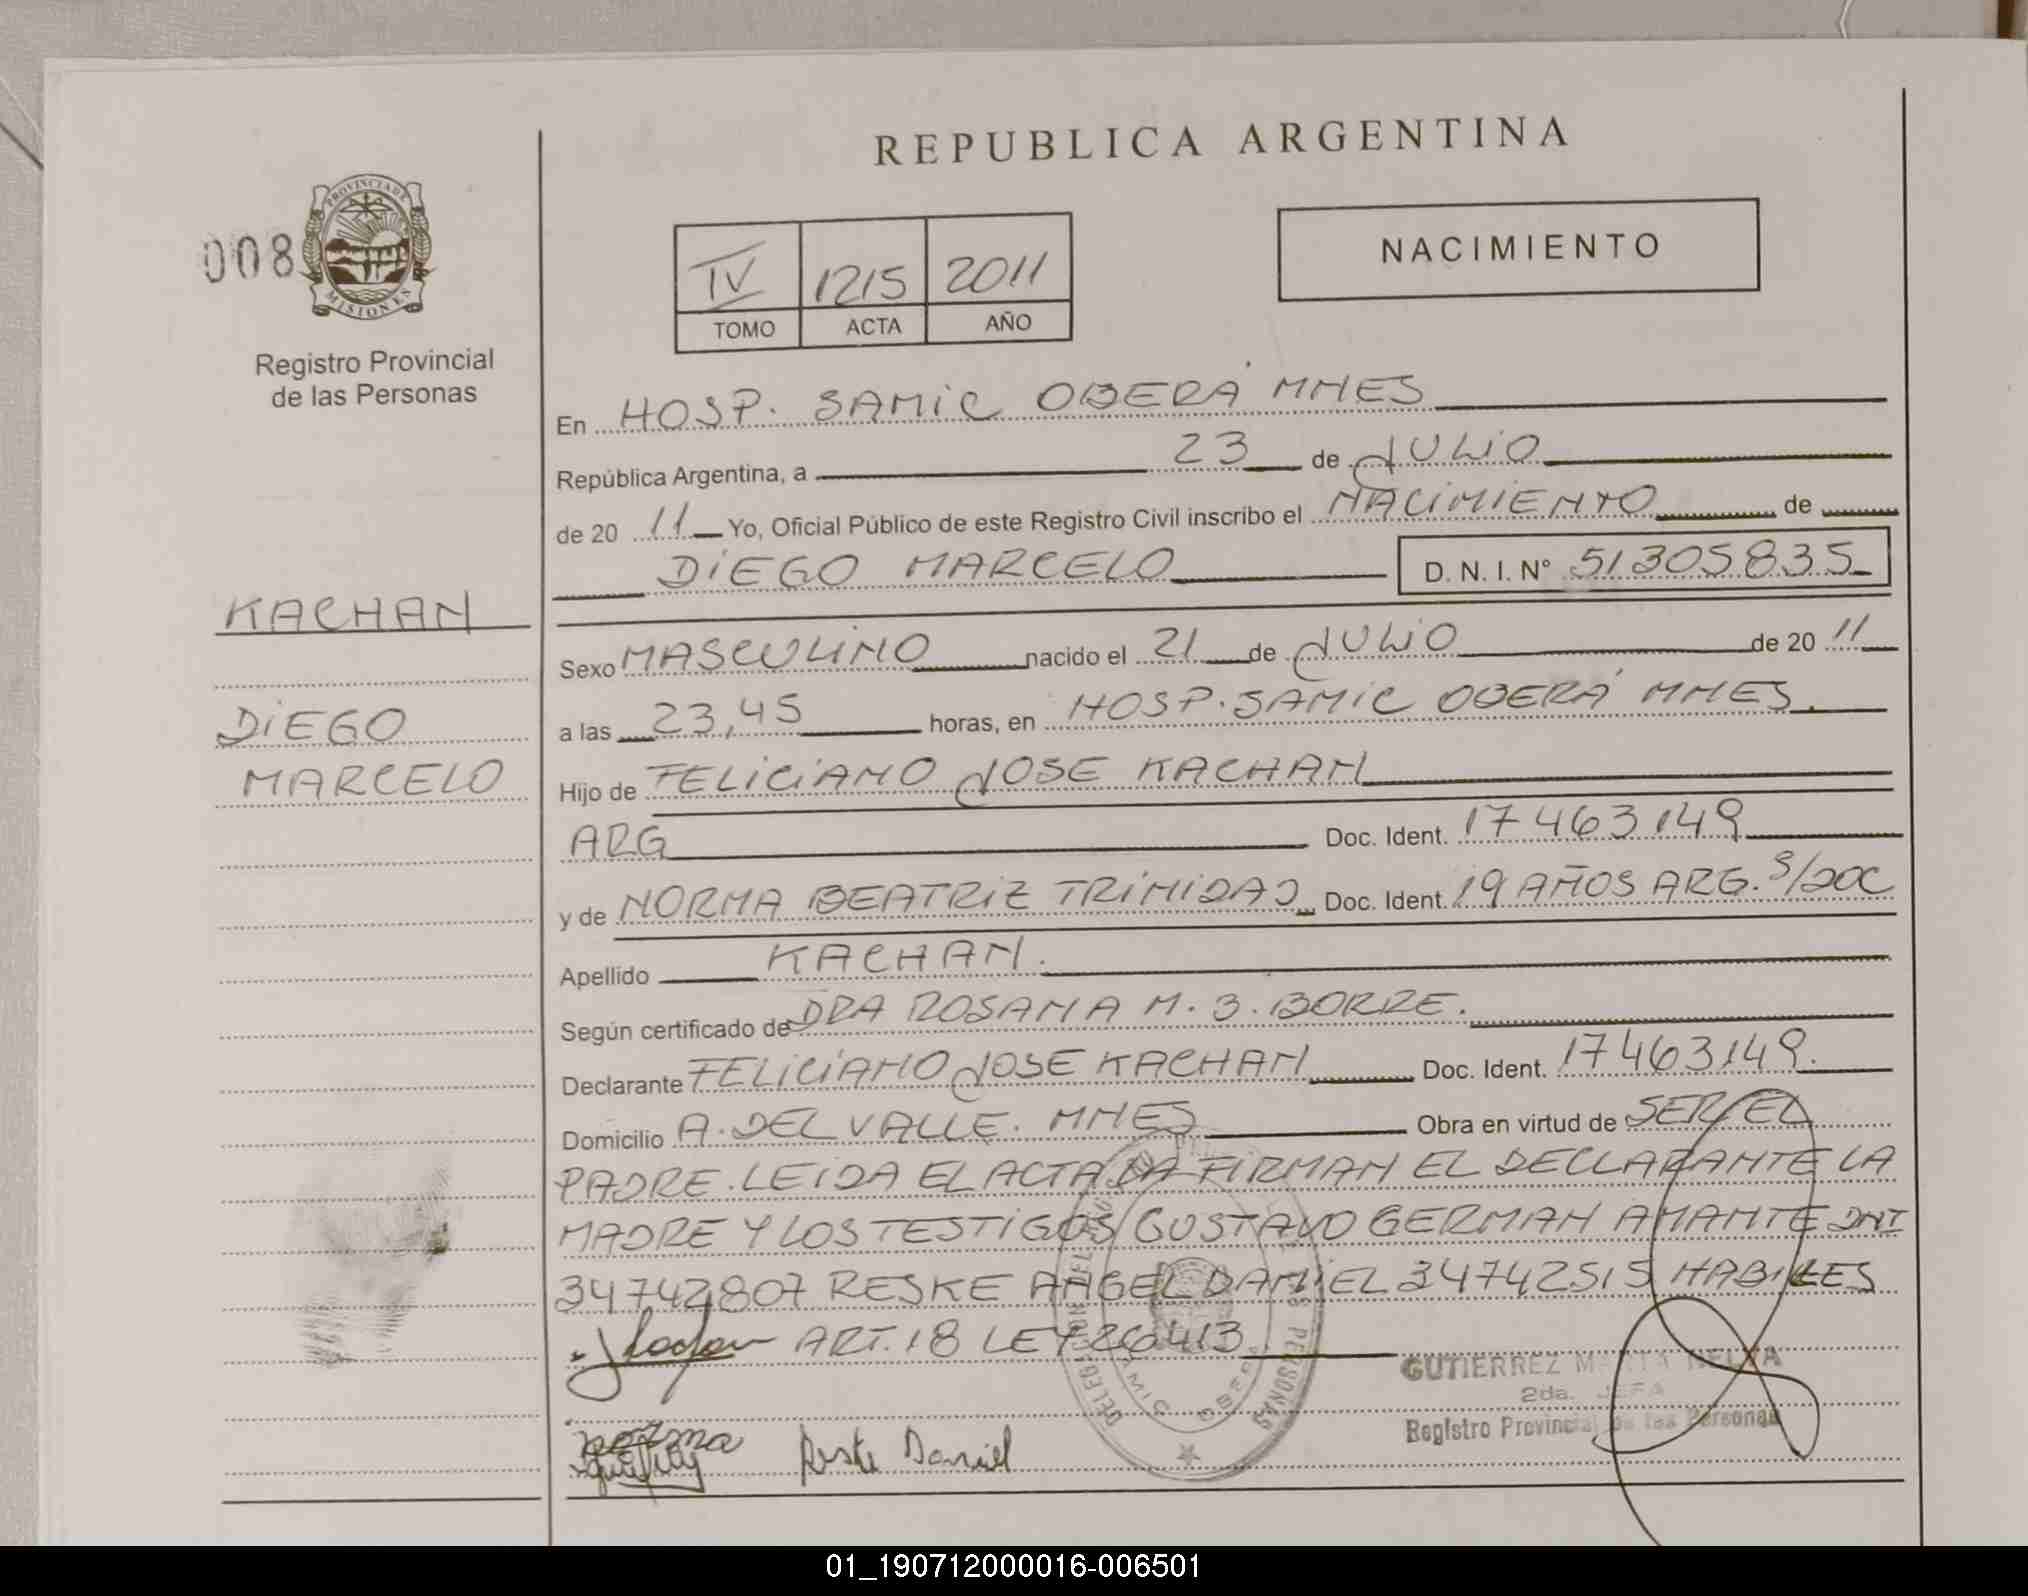 REPUBLICA ARGENTINA
008
PROVINCIA DE
MISIONES
Registro Provincial
de las Personas
IV 1215 2011
TOMO ACTA AÑO
NACIMIENTO
En HOSP. SAMIC OBERÁ MNES
República Argentina, a 23 de JULIO
de 20 11 Yo, Oficial Público de este Registro Civil inscribo el NACIMIENTO de
DIEGO MARCELO D. N. I. Nº 51305835
KACHAN
DIEGO
MARCELO
Sexo MASCULINO nacido el 21 de JULIO de 20 11
a las 23,45 horas, en HOSP. SAMIC OBERÁ MNES.
Hijo de FELICIANO JOSE KACHAN
ARG Doc. Ident. 17463149
y de NORMA BEATRIZ TRINIDAD Doc. Ident. 19 AÑOS ARG. S/DOC
Apellido KACHAN.
Según certificado de DRA ROSANA M. B. BORRE.
Declarante FELICIANO JOSE KACHAN Doc. Ident. 17463149.
Domicilio A. DEL VALLE. MNES Obra en virtud de SER EL
PADRE. LEIDA EL ACTA LA FIRMAN EL DECLARANTE LA
MADRE Y LOS TESTIGOS GUSTAVO GERMAN AMANTE DNI
34742807 RESKE ANGEL DANIEL 34742515 HABILES
ART. 18 LEY 26413
GUTIERREZ MARTA NELDA
2da. JEFA
Registro Provincial de las Personas
norma
Reske Daniel
01_190712000016-006501